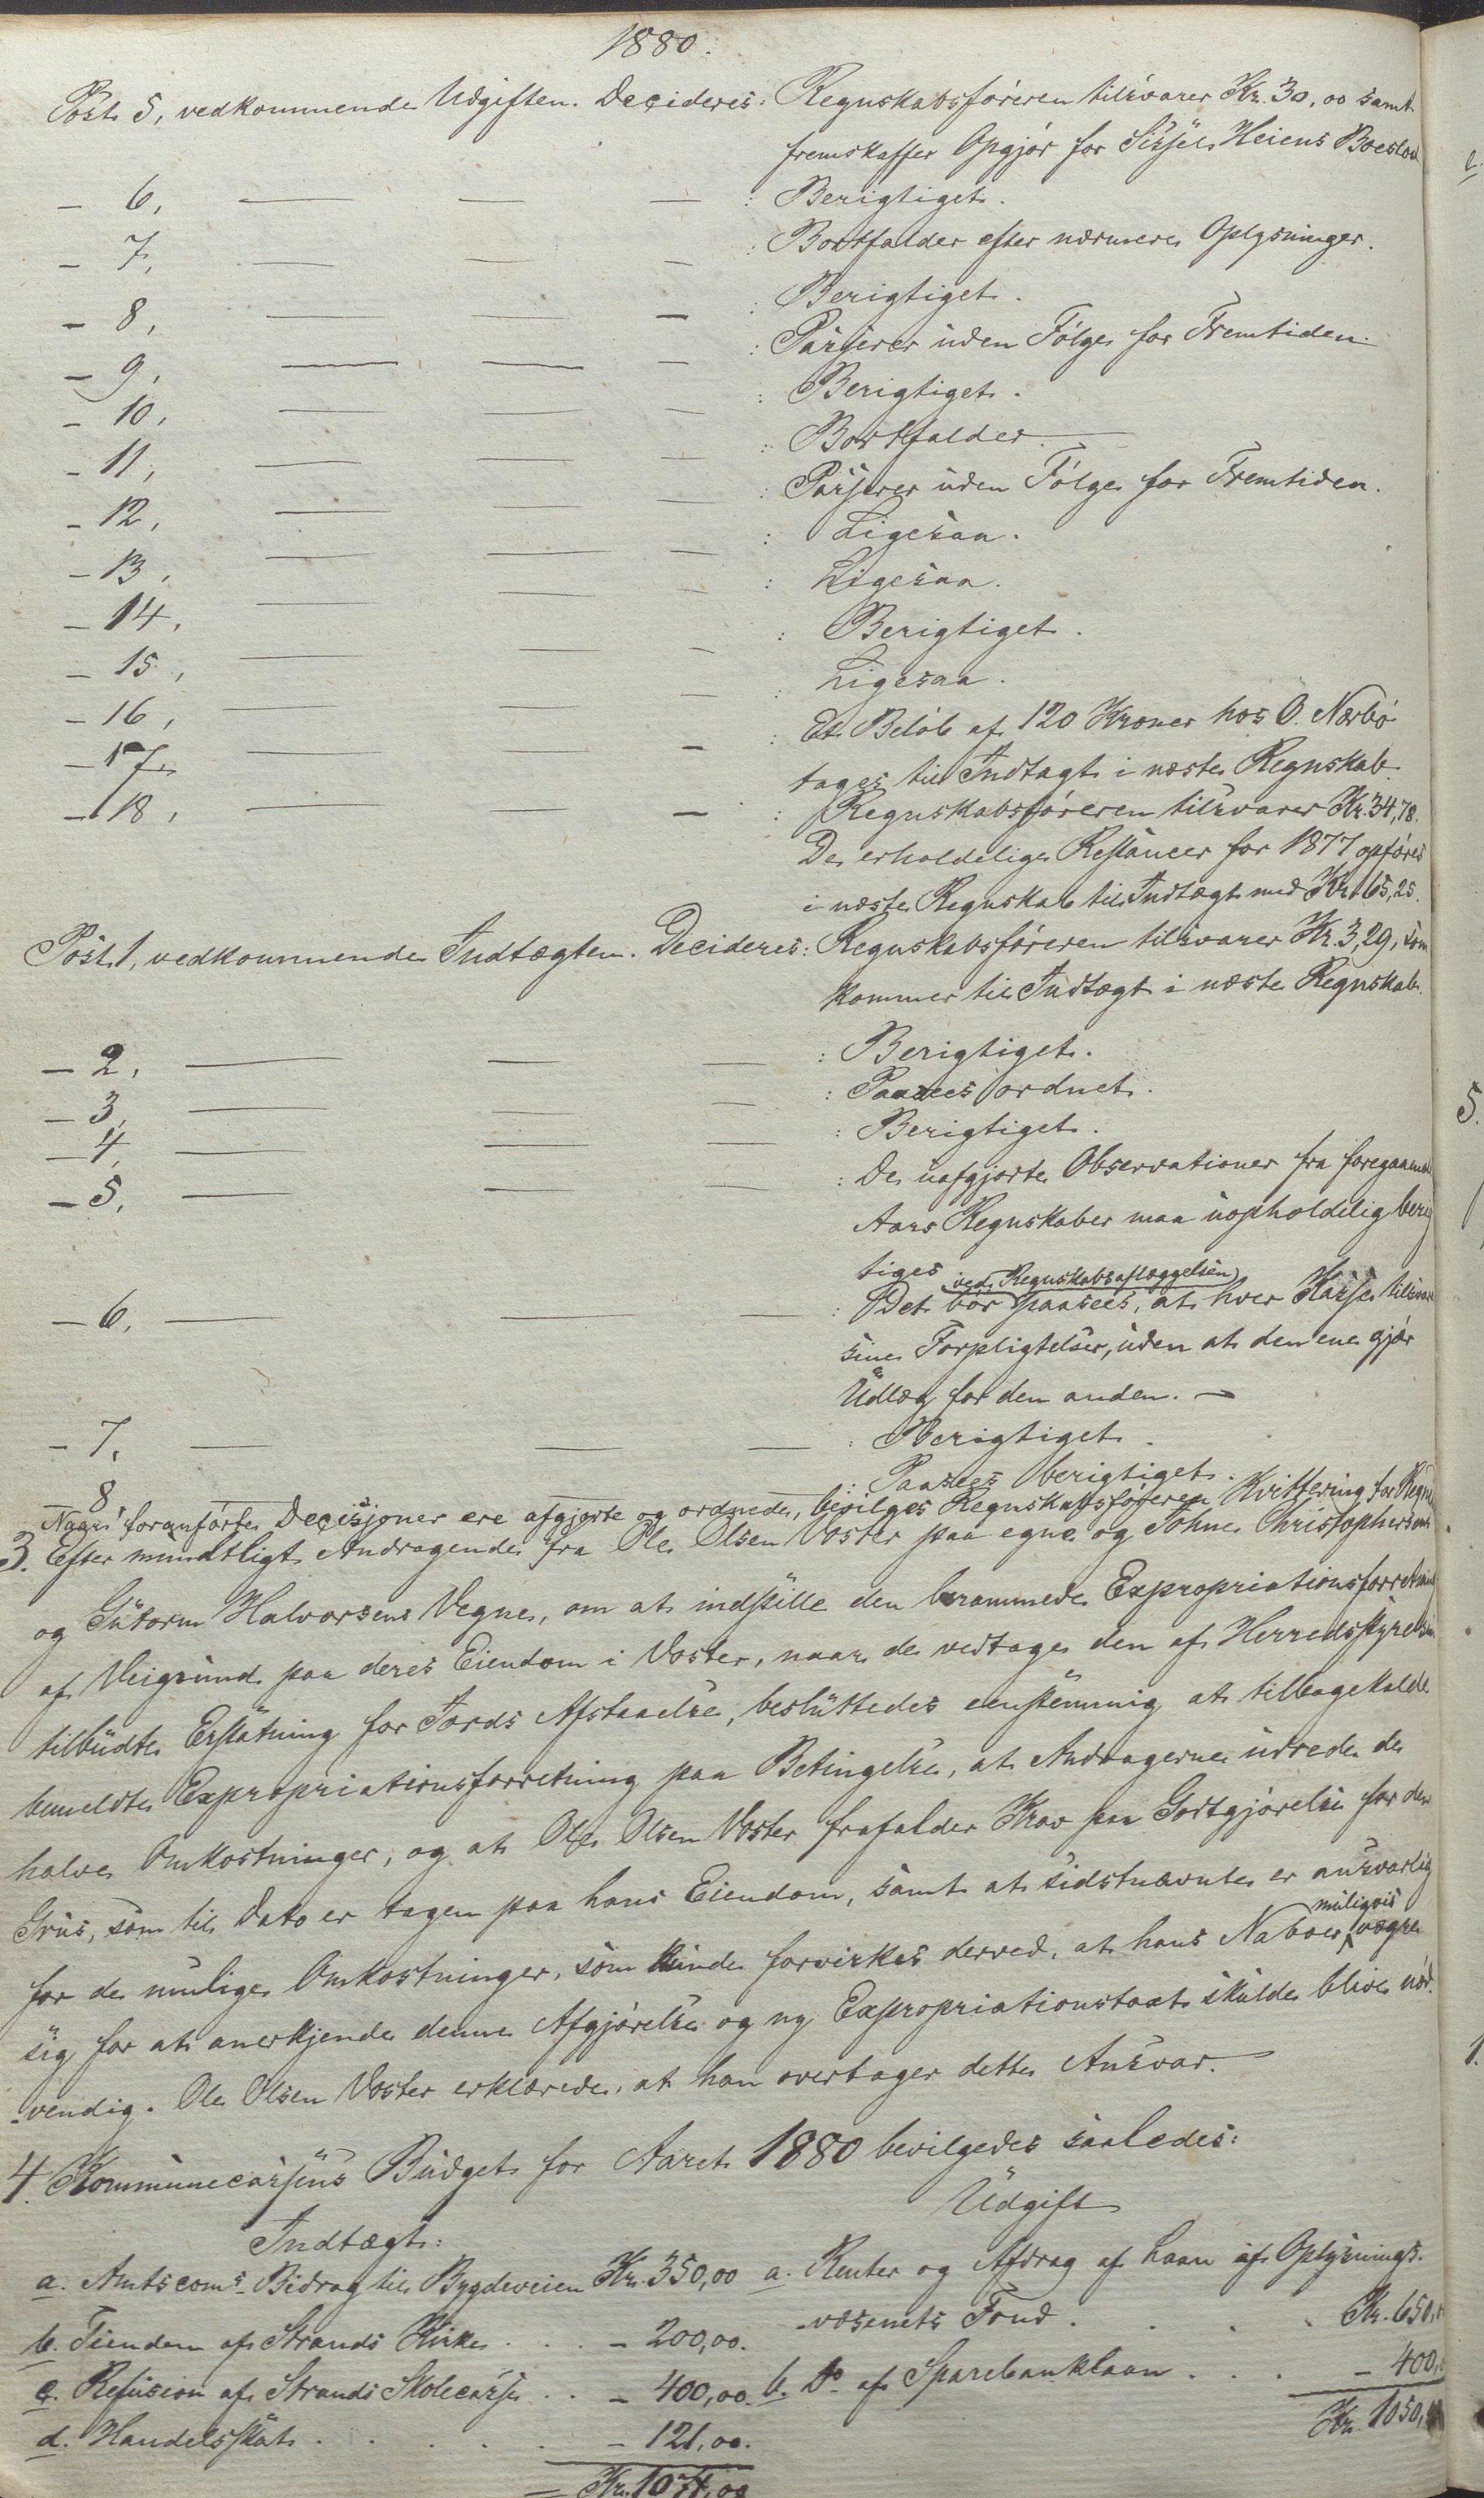 1880.
Post 5, vedkommende Udgiften. Decideres: Regnskabsføreren tilsvarer Kr. 30,00 samt
fremskaffer Opgjør for Sissel Heiens Boeslod
- 6, — — — : Berigtiget.
- 7, — — — : Bortfalder efter nærmere Oplysninger.
- 8, — — — : Berigtiget.
- 9, — — — : Passerer uden Følge for Fremtiden.
- 10, — — — : Berigtiget.
- 11, — — — : Bortfalder.
- 12, — — — : Passerer uden Følge for Fremtiden.
- 13, — — — : Ligesaa.
- 14, — — — : Ligesaa.
- 15, — — — : Berigtiget.
- 16, — — — : Ligesaa.
- 17, — — — : Et Beløb af 120 Kroner hos O. Nærbø
tages til Indtægt i næste Regnskab.
- 18, — — — : Regnskabsføreren tilsvarer Kr. 34,78.
De erholdelige Restancer for 1877 opføres
i næste Regnskab til Indtægt med Kr. 165,25.
Post 1, vedkommende Indtægten. Decideres: Regnskabsføreren tilsvarer Kr. 3,29, som
kommer til Indtægt i næste Regnskab.
- 2, — — — : Berigtiget.
- 3, — — — : Paasees ordnet.
- 4, — — — : Berigtiget.
- 5, — — — : De uafgjorte Observationer fra foregaaende
Aars Regnskaber maa uopholdelig berig
tiges
ved Regnskabsaflæggelsen
- 6, — — — : Det bør paasees, at hver Kasse tilsvarer
sine Forpligtelser, uden at den ene gjør
Udlæg for den anden. —
- 7, — — — : Berigtiget.
- 8 — — — : Paasees berigtiget.
Naar foranførte Decisjoner ere afgjorte og ordnede, bevilges Regnskabsføreren Kvittering for Regns
3. Efter mundtligt Andragende fra Ole Olsen Voster paa egne og Tohne Christophersens
og Gutorm Halvorsens Vegne, om at indstille den berammede Expropriationsforretning
af Veigrund paa deres Eiendom i Voster, naar de vedtage den af Herredsstyrelsen
tilbudte Erstatning for Jords Afstaaelse, besluttedes eenstemmig at tilbagekalde
bemeldte Expropriationsforretning paa Betingelse, at Andragerne udrede de
halve Omkostninger, og at Ole Olsen Voster frafalder Krav paa Godtgjørelse for den
Grus, som til Dato er tagen paa hans Eiendom, samt at sidstnævnte er ansvarlig
muligvis
for de mulige Omkostninger, som kunde forvirkes derved, at hans Naboer vægre
sig for at anerkjende denne Afgjørelse og ny Expropriationstaxt skulde blive nød-
-vendig. Ole Olsen Voster erklærede, at han overtager dette Ansvar.
4. Kommunecassens Budget for Aaret 1880 bevilgedes saaledes:
Indtægt: Udgift
a. Amtscoms. Bidrag til Bygdeveien Kr. 350,00 a. Renter og Afdrag af Laan af Oplysnings-
b. Tienden af Strands Kirke . . . - 200,00. -væsenets Fond . . . . Kr. 650,0
c. Refusion af Strands Skolecasse . . - 400,00. b. Do af Sparebanklaan . . . - 400,0
d. Handelsskat . . . . . - 121,00. Kr. 1050,00
= Kr. 1071,00